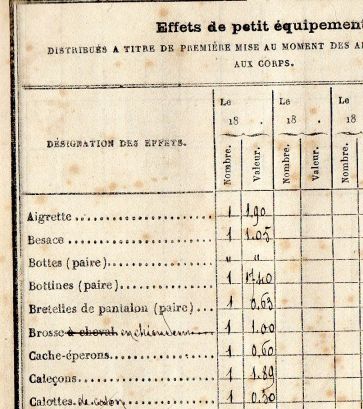 Effets de petit équipement
DISTRIBUÉS A TITRE DE PREMIÈRE MISE AU MOMENT DES
AUX CORPS.
DÉSIGNATION DES EFFETS.
Le Le Le
18 . 18 . 18
Nombre. Valeur. Nombre. Valeur. Nombre.
Aigrette 1 1.90
Besace 1 1.05
Bottes (paire) " "
Bottines (paire) 1 17.40
Bretelles de pantalon (paire) 1 0.63
Brosse à cheval en chiendent 1 1.00
Cache-éperons 1 0.60
Caleçons 1 1.89
Calottes de coton 1 0.50